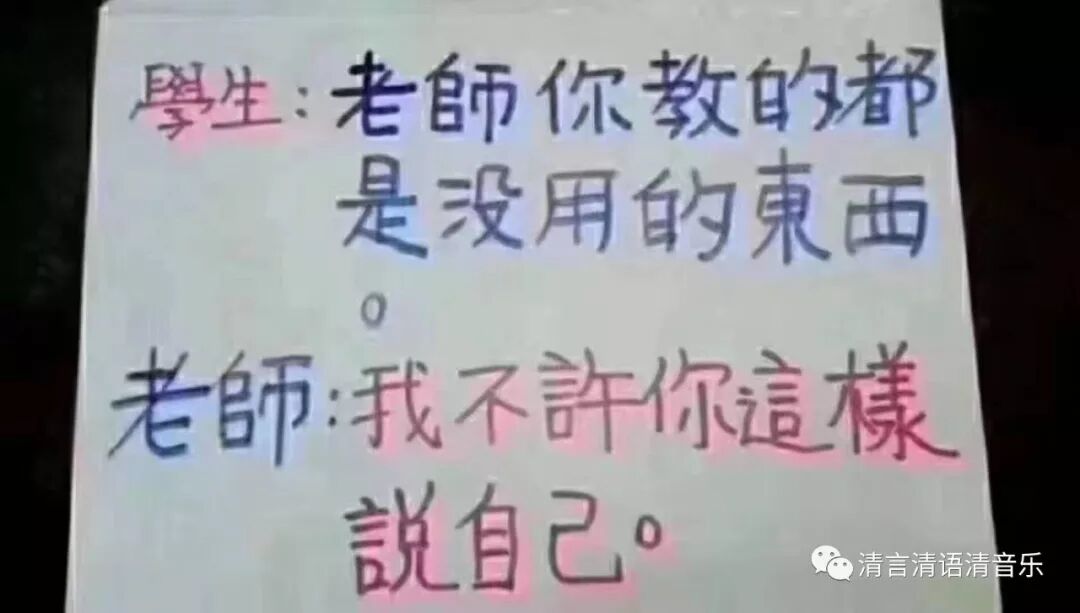 學生：老師你教的都
是没用的東西
。
老師：我不許你這樣
説自己。
清言清语清音乐